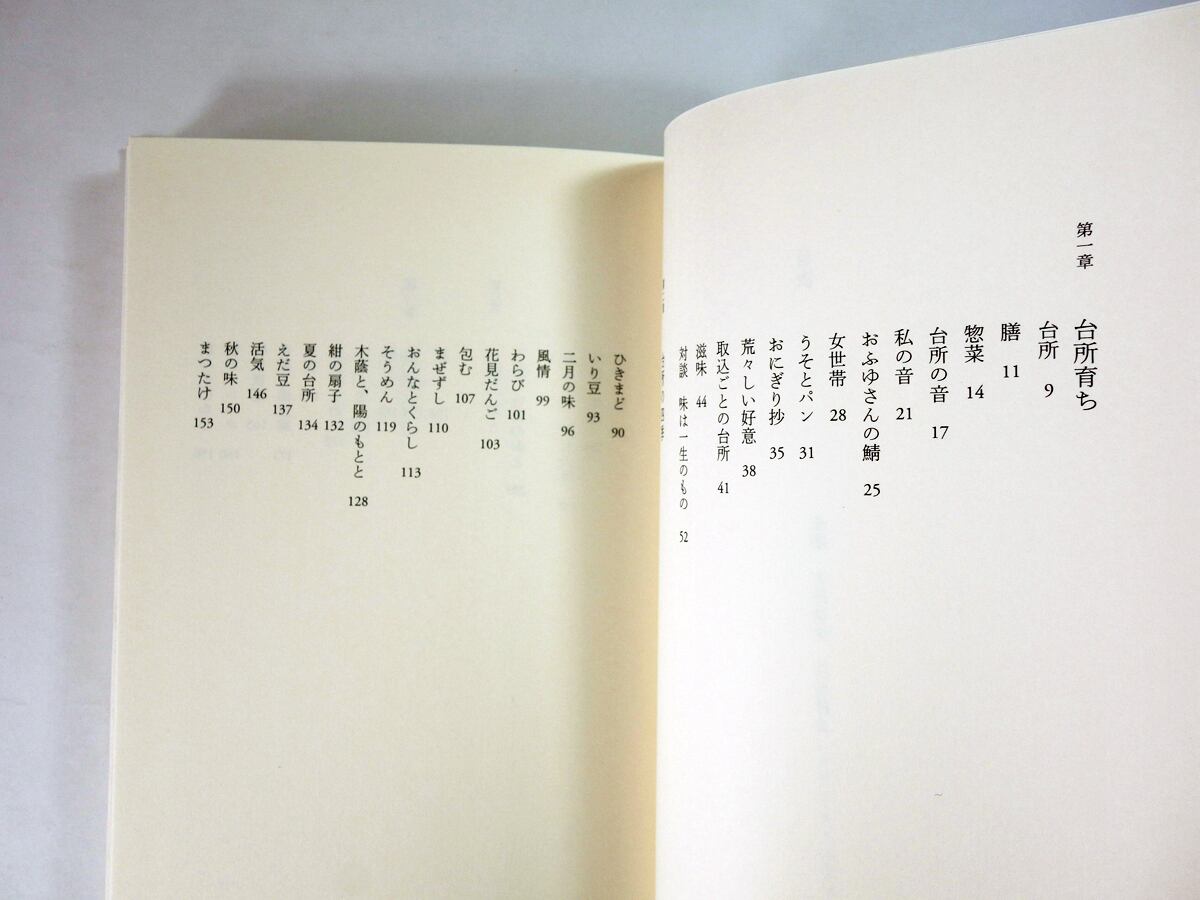 第一章 台所育ち
台所 9
膳 11
惣菜 14
台所の音 17
私の音 21
おふゆさんの鯖 25
女世帯 28
うそとパン 31
おにぎり抄 35
荒々しい好意 38
取込ごとの台所 41
滋味 44
対談 味は一生のもの 52
ひきまど 90
いり豆 93
二月の味 96
風情 99
わらび 101
花見だんご 103
包む 107
まぜずし 110
おんなとくらし 113
そうめん 119
木蔭と、陽のもとと 128
紺の扇子 132
夏の台所 134
えだ豆 137
活気 146
秋の味 150
まつたけ 153